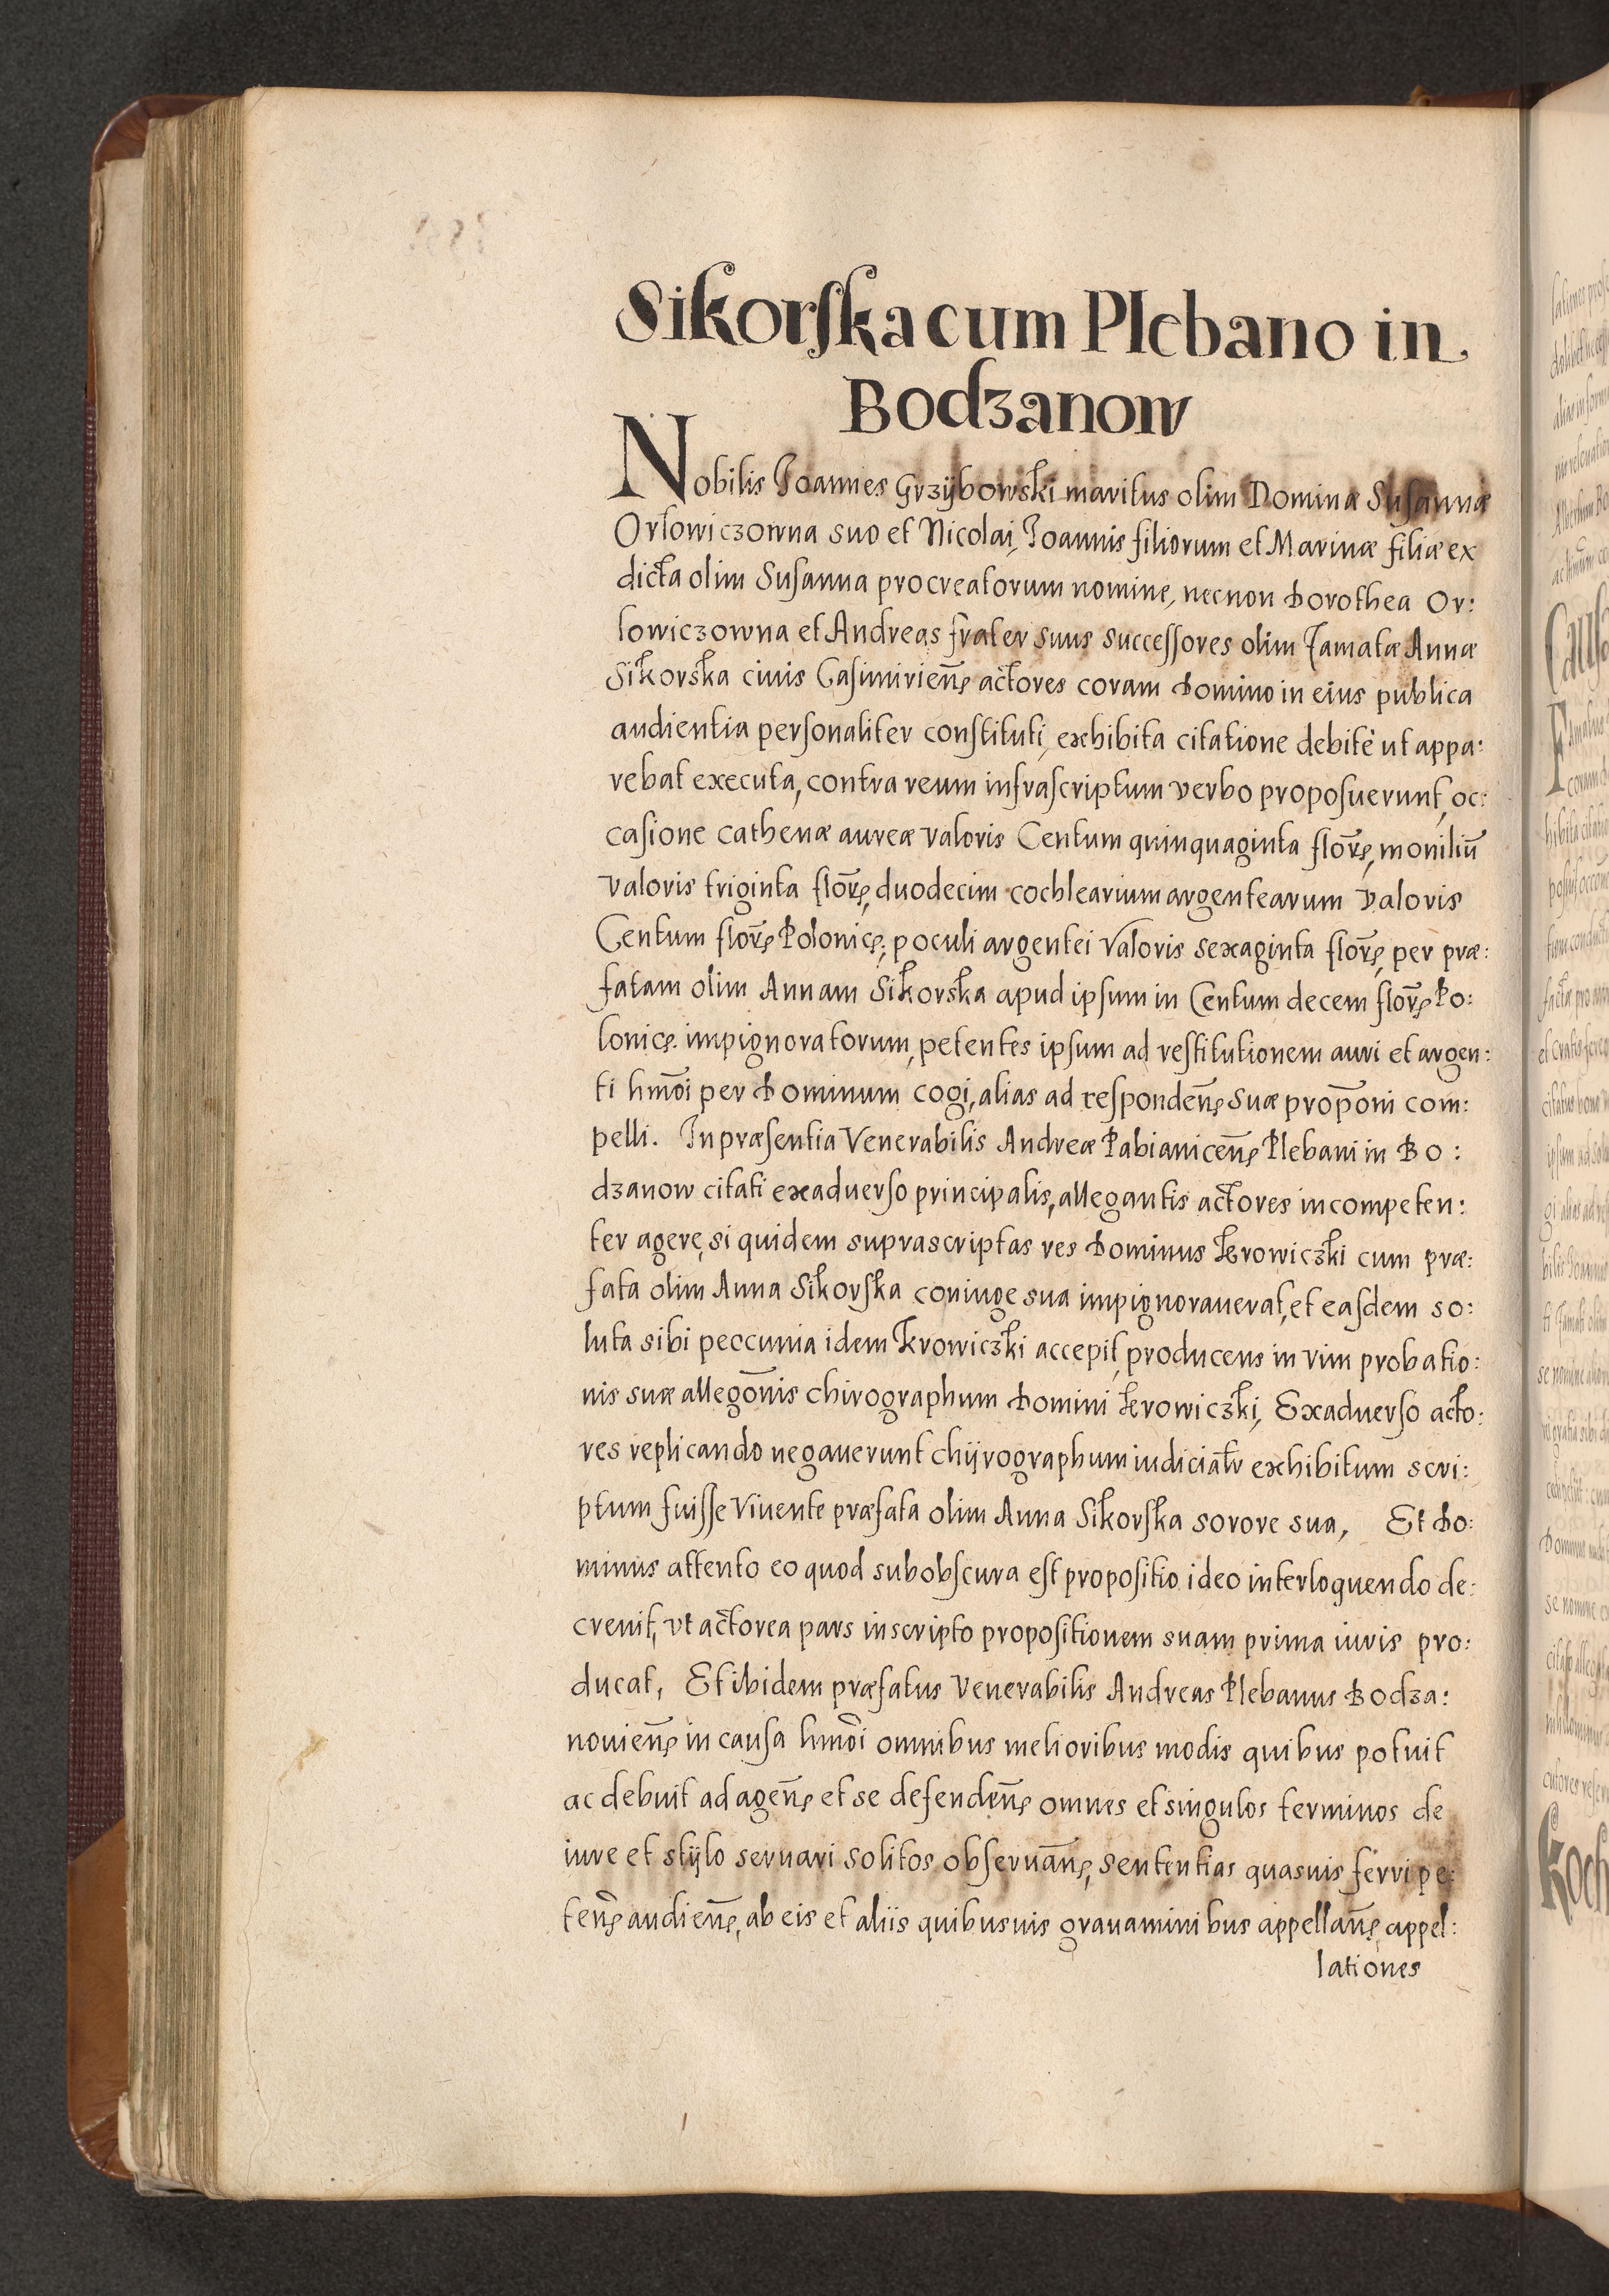 Sikorſka cum Plebano in
Bodzanow
Nobilis Joannes Grzÿbowski maritus olim Dominæ Susannæ
Orłowiczowna suo et Nicolai, Joannis filiorum et Marinæ filiæ ex
dicta olim Susanna procreatorum nomine, necnon Dorothea Or:
lowiczowna et Andreas frater suus successores olim Famatæ Annæ
Sikorska ciuis Casimirień actores coram Domino in eius publica
audientia personaliter constituti, exhibita citatione debitè ut appa:
rebat executa, contra reum infrascriptum verbo proposuerunt, oc:
casione cathenæ aureæ valoris Centum quinquaginta florę, moniliū
valoris triginta florę, duodecim cochlearium argentearum valoris
Centum florę Polonicę, poculi argentei valoris sexaginta florę, per præ:
fatam olim Annam Sikorska apud ipsum in Centum decem florę Po:
lonicę impignoratorum, petentes ipsum ad restitutionem auri et argen:
ti hmōi per Dominum cogi, alias ad respondeń suæ propōni com:
pelli. In præsentia Venerabilis Andreæ Pabianiceń Plebani in Bo:
dzanow citati exaduerso principalis, allegantis actores incompeten:
ter agere, si quidem suprascriptas res Dominus Krowiczki cum præ:
fata olim Anna Sikorska coniuge sua impignorauerat, et easdem so:
luta sibi peccunia idem Krowiczki accepit, producens in vim probatio:
nis suæ allegōnis chirographum Domini Krowiczki, Exaduerso acto:
res replicando negauerunt chÿrographum iudicialr exhibitum scri:
ptum fuisse viuente præfata olim Anna Sikorska sorore sua, Et Do:
minus attento eo quod subobscura est propositio ideo interloquendo de:
creuit, vt actorea pars in scripto propositionem suam prima iuris pro:
ducat, Et ibidem præfatus Venerabilis Andreas Plebanus Bodza:
nouień in causa hmōi omnibus melioribus modis quibus potuit
ac debuit ad ageń et se defendeń omnes et singulos terminos de
iure et stÿlo seruari solitos obseruań, sententias quasuis ferri pe:
teń audień, ab eis et aliis quibusuis grauaminibus appellań, appel:
lationes